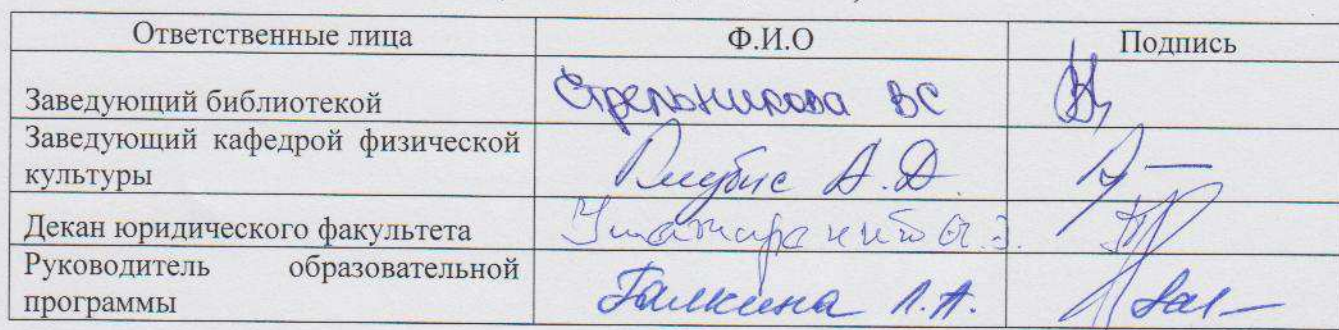 Ответственные лица Ф.И.О Подпись
Заведующий библиотекой Стрельникова ВС
Заведующий кафедрой физической
культуры А.Д.
Декан юридического факультета
Руководитель образовательной
программы Галкина Л.А.